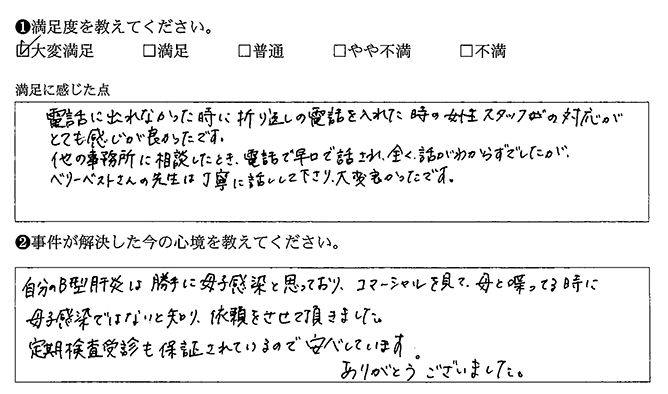 ❶満足度を教えてください。
☑大変満足 □満足 □普通 □やや不満 □不満
満足に感じた点
電話に出れなかった時に折り返しの電話を入れた時の女性スタッフの対応が
とても感じが良かったです。
他の事務所に相談したとき、電話で早口で話され、全く話がわからずでしたが、
ベリーベストさんの先生は丁寧に話しして下さり、大変良かったです。
❷事件が解決した今の心境を教えてください。
自分のB型肝炎は勝手に母子感染と思っており、コマーシャルを見て、母と喋ってる時に
母子感染ではないと知り、依頼をさせて頂きました。
定期検査受診も保証されているので安心しています。
ありがとうございました。